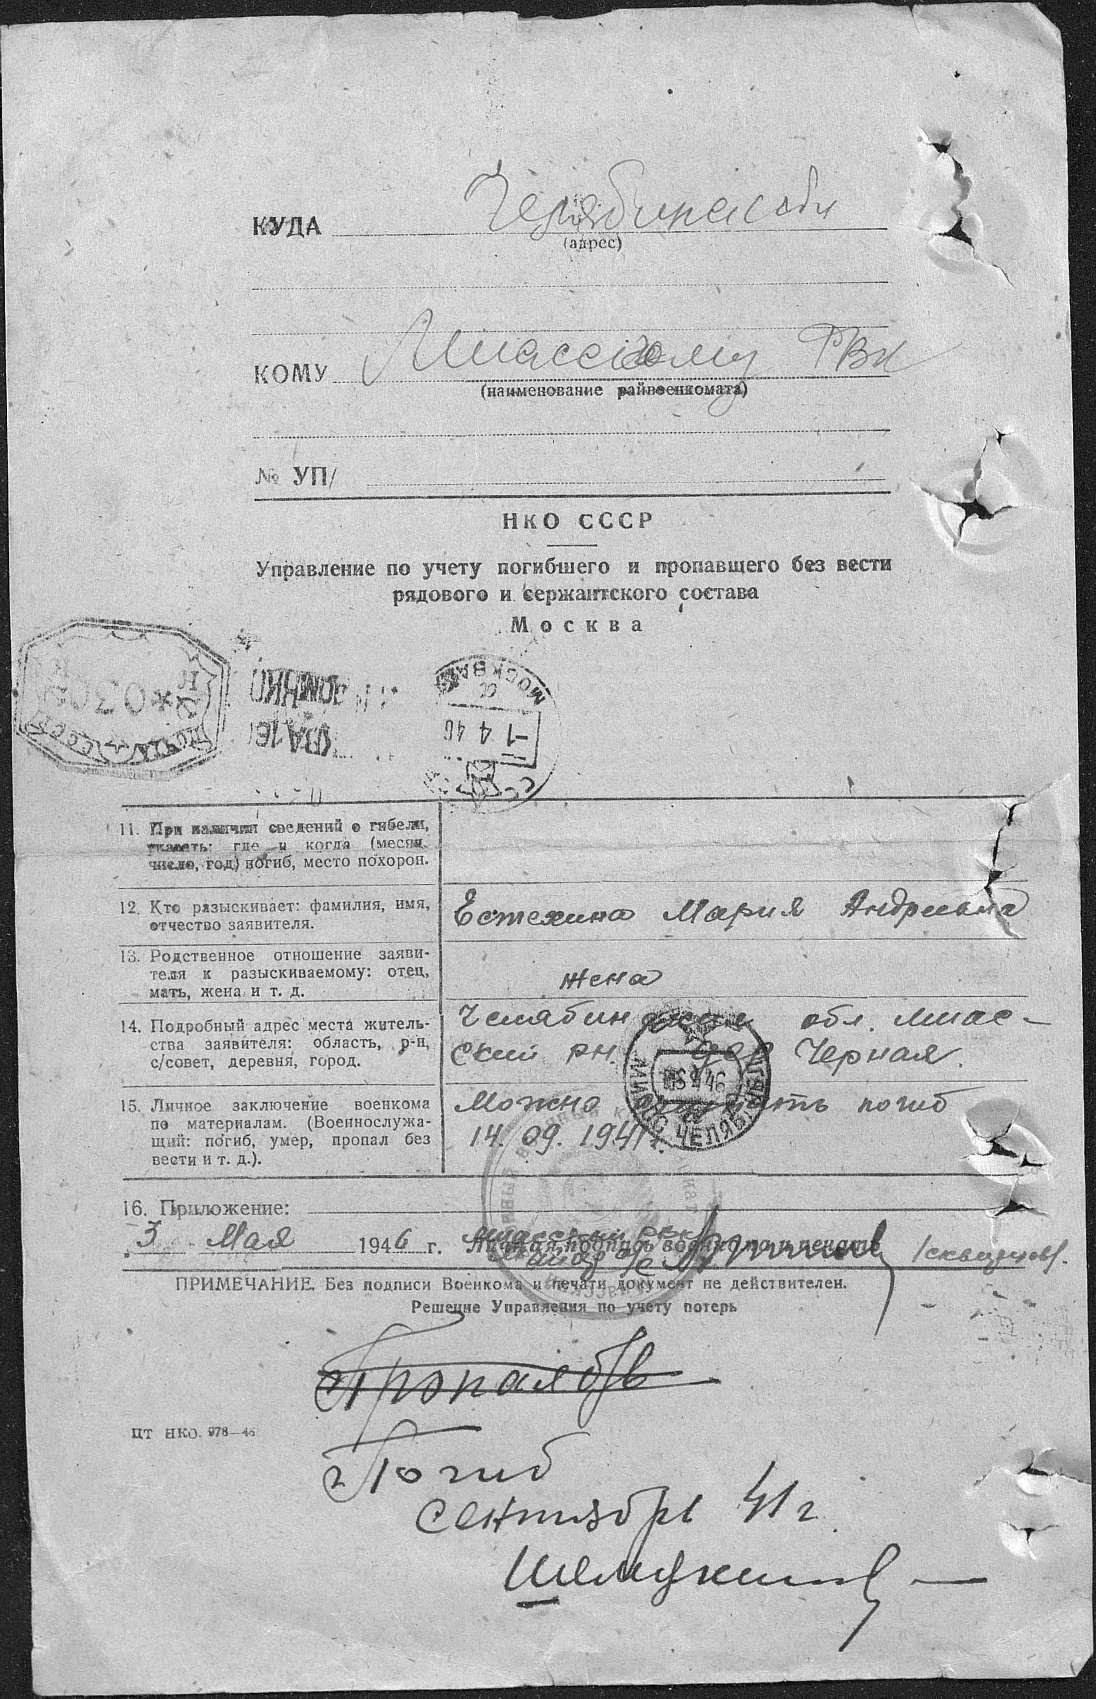 КУДА Челябинск обл
(адрес)
КОМУ Миасскому РВК
(наименование райвоенкомата)
№ УП/
НКО СССР
Управление по учету погибшего и пропавшего без вести
рядового и сержантского состава
Москва
ПОЧТА СССР
*030
МОСКВА
-1 4 46
11. При наличии сведений о гибели,
указать: где и когда (месяц,
число, год) погиб, место похорон.
12. Кто разыскивает: фамилия, имя,
отчество заявителя.
Естехина Мария Андреевна
13. Родственное отношение заяви-
теля к разыскиваемому: отец,
мать, жена и т. д.
жена
14. Подробный адрес места житель-
ства заявителя: область, р-н,
с/совет, деревня, город.
Челябинская обл. Миас-
ский рн. дер Черная.
МИАСС ЧЕЛЯБ.
15. Личное заключение военкома
по материалам. (Военнослужа-
щий: погиб, умер, пропал без
вести и т. д.).
Можно считать погиб
14. 09. 1941 г.
16. Приложение:
3 Мая 1946 г. Миасский
Личная подпись военкома и печать
ПРИМЕЧАНИЕ. Без подписи Военкома и печати документ не действителен.
Решение Управления по учету потерь
Пропал б/в
ЦТ НКО. 978—46
Погиб
сентябрь 41 г.